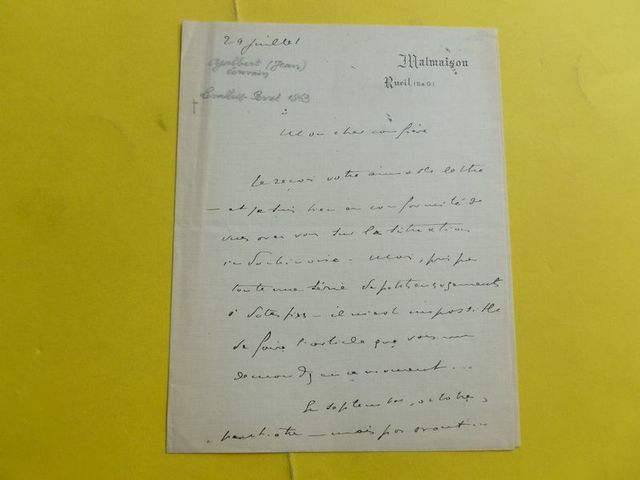 29 juillet
Ajalbert (Jean)
Malmaison
Rueil (S & O)
Levallois-Perret 1863
Mon cher confrère
Je reçois votre aimable lettre
— et je suis bien en conformité de
vues avec vous sur la situation
indochinoise. Mais, pris par
toute une série de petits engagements
à dates fixes — il m'est impossible
de faire l'article que vous me
demandez en ce moment...
En septembre, octobre,
peut-être — mais pas avant...